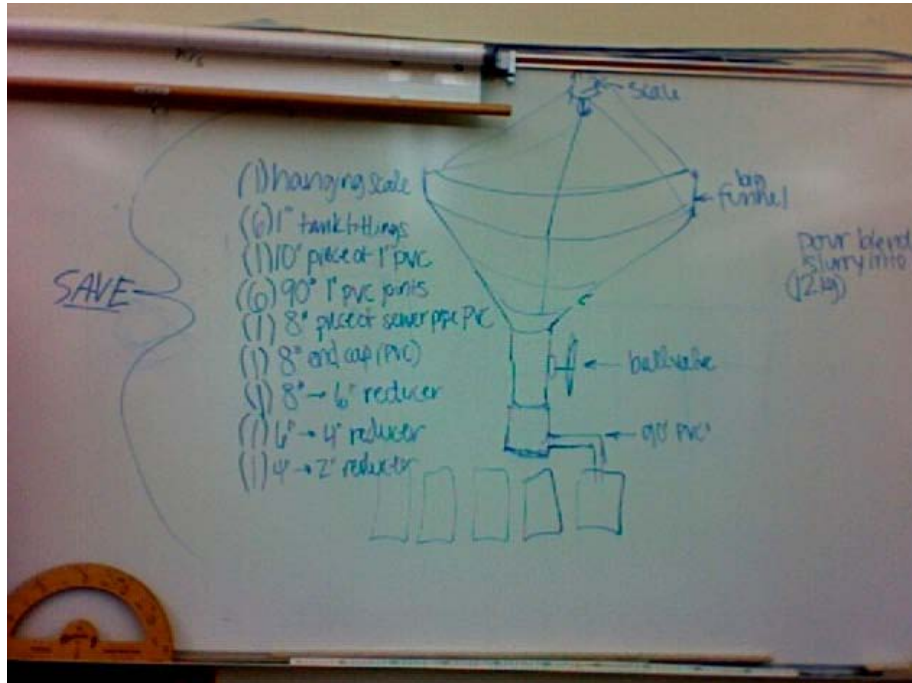 scale
(1) hanging scale
(6) 1" tank fittings
(1) 10" piece of 1" pvc
(6) 90° 1" pvc joints
(1) 8" piece of sewer pipe PVC
(1) 8" end cap (PVC)
(1) 8" → 6" reducer
(1) 6" → 4" reducer
(1) 4" → 2" reducer
SAVE
big
funnel
pour blend
slurry into
(12 kg)
ball valve
90° PVC